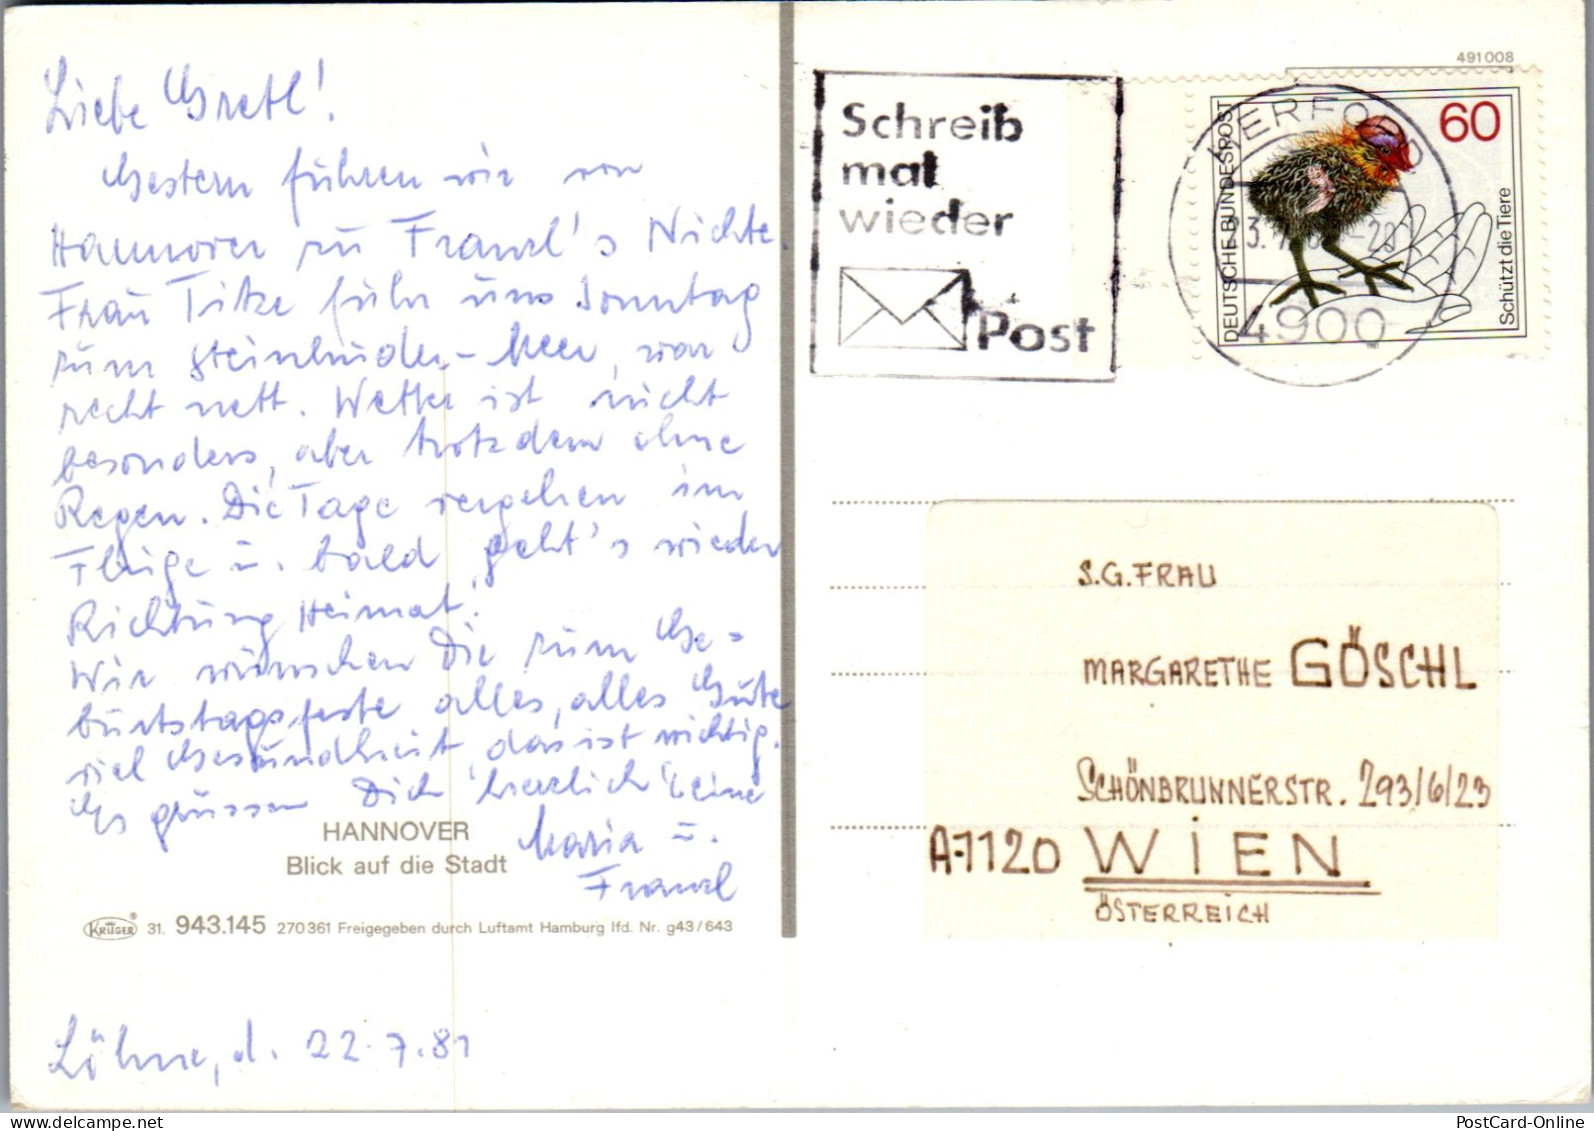 Liebe Gretl!
Gestern führen wir von
Hannover zu Franzl's Nichte.
Frau Titze fuhr uns Sonntag
zum Steinhuder-Meer, war
recht nett. Wetter ist nicht
besonders, aber trotzdem ohne
Regen. Die Tage vergehen im
Fluge u. bald geht's wieder
Richtung Heimat!
Wir wünschen Die zum Ge=
burtstagsfeste alles, alles Gute
viel Gesundheit, das ist wichtig.
Es grüssen Dich herzlich Deine
Maria u.
Franzl
HANNOVER
Blick auf die Stadt
KRÜGER® 31. 943.145 270361 Freigegeben durch Luftamt Hamburg lfd. Nr. g43/643
Löhne, d. 22.7.81
491008
Schreib
mal
wieder
Post
HERFORD
4900
DEUTSCHE BUNDESPOST
60
Schützt die Tiere
1981
S.G. FRAU
MARGARETHE GÖSCHL
SCHÖNBRUNNERSTR. 293/6/23
A-1120 WIEN
ÖSTERREICH
PostCard-Online.com
PostCard-Online